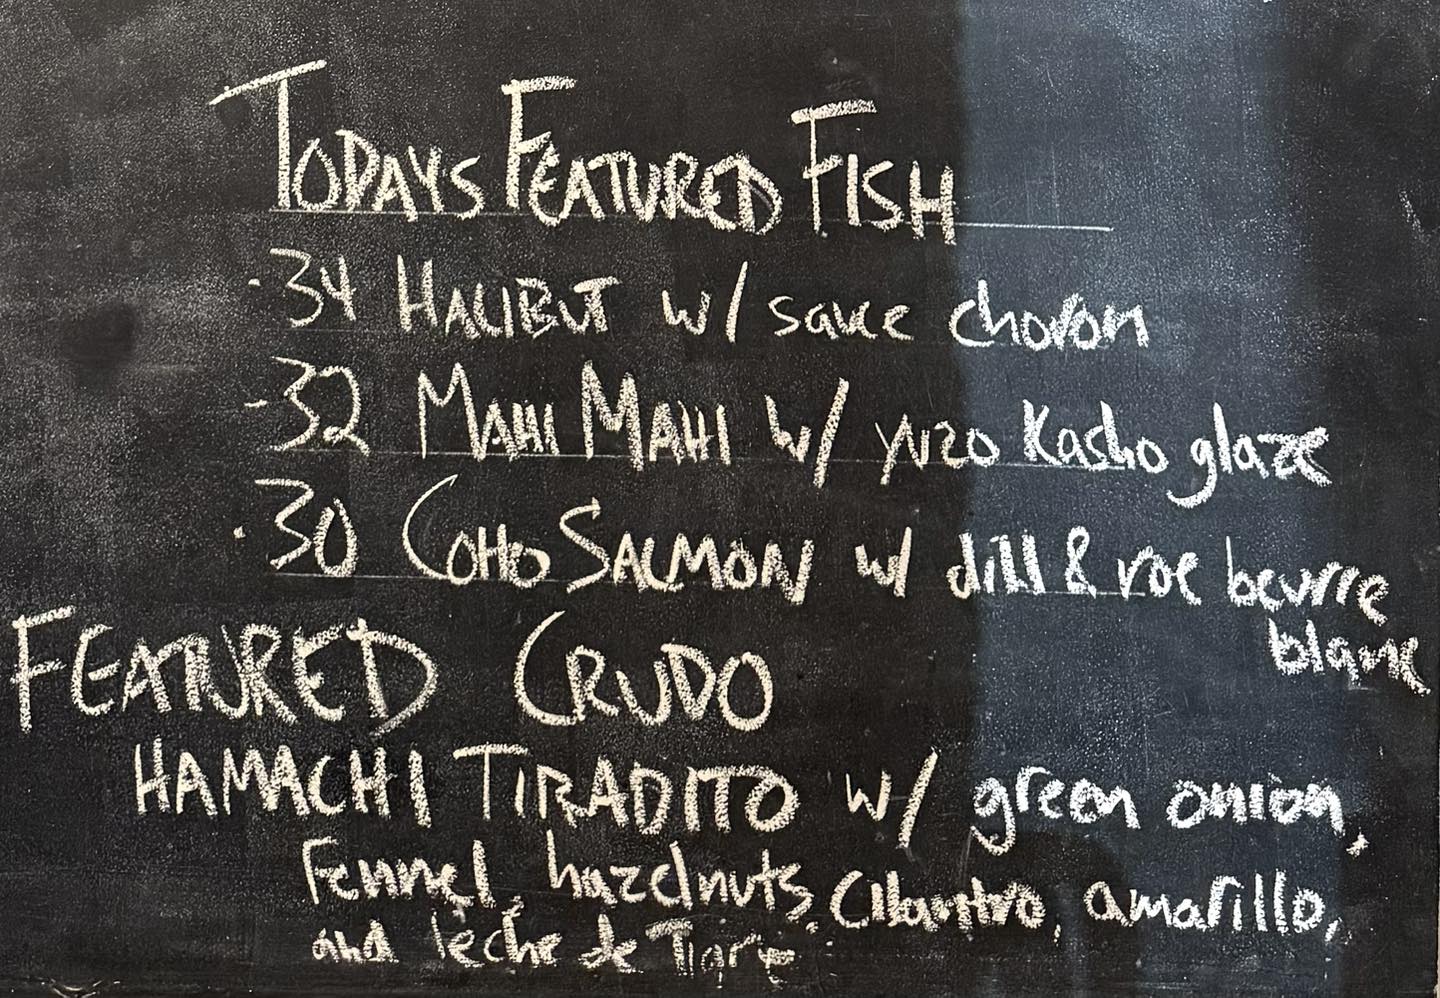 TODAYS FEATURED FISH
·34 HALIBUT w/ sauce choron
-32 MAHI MAHI w/ yuzo Kasho glaze
·30 COHO SALMON w/ dill & roe beurre
blanc
FEATURED CRUDO
HAMACHI TIRADITO w/ green onion,
Fennel, hazelnuts, Cilantro, amarillo,
and leche de Tigre